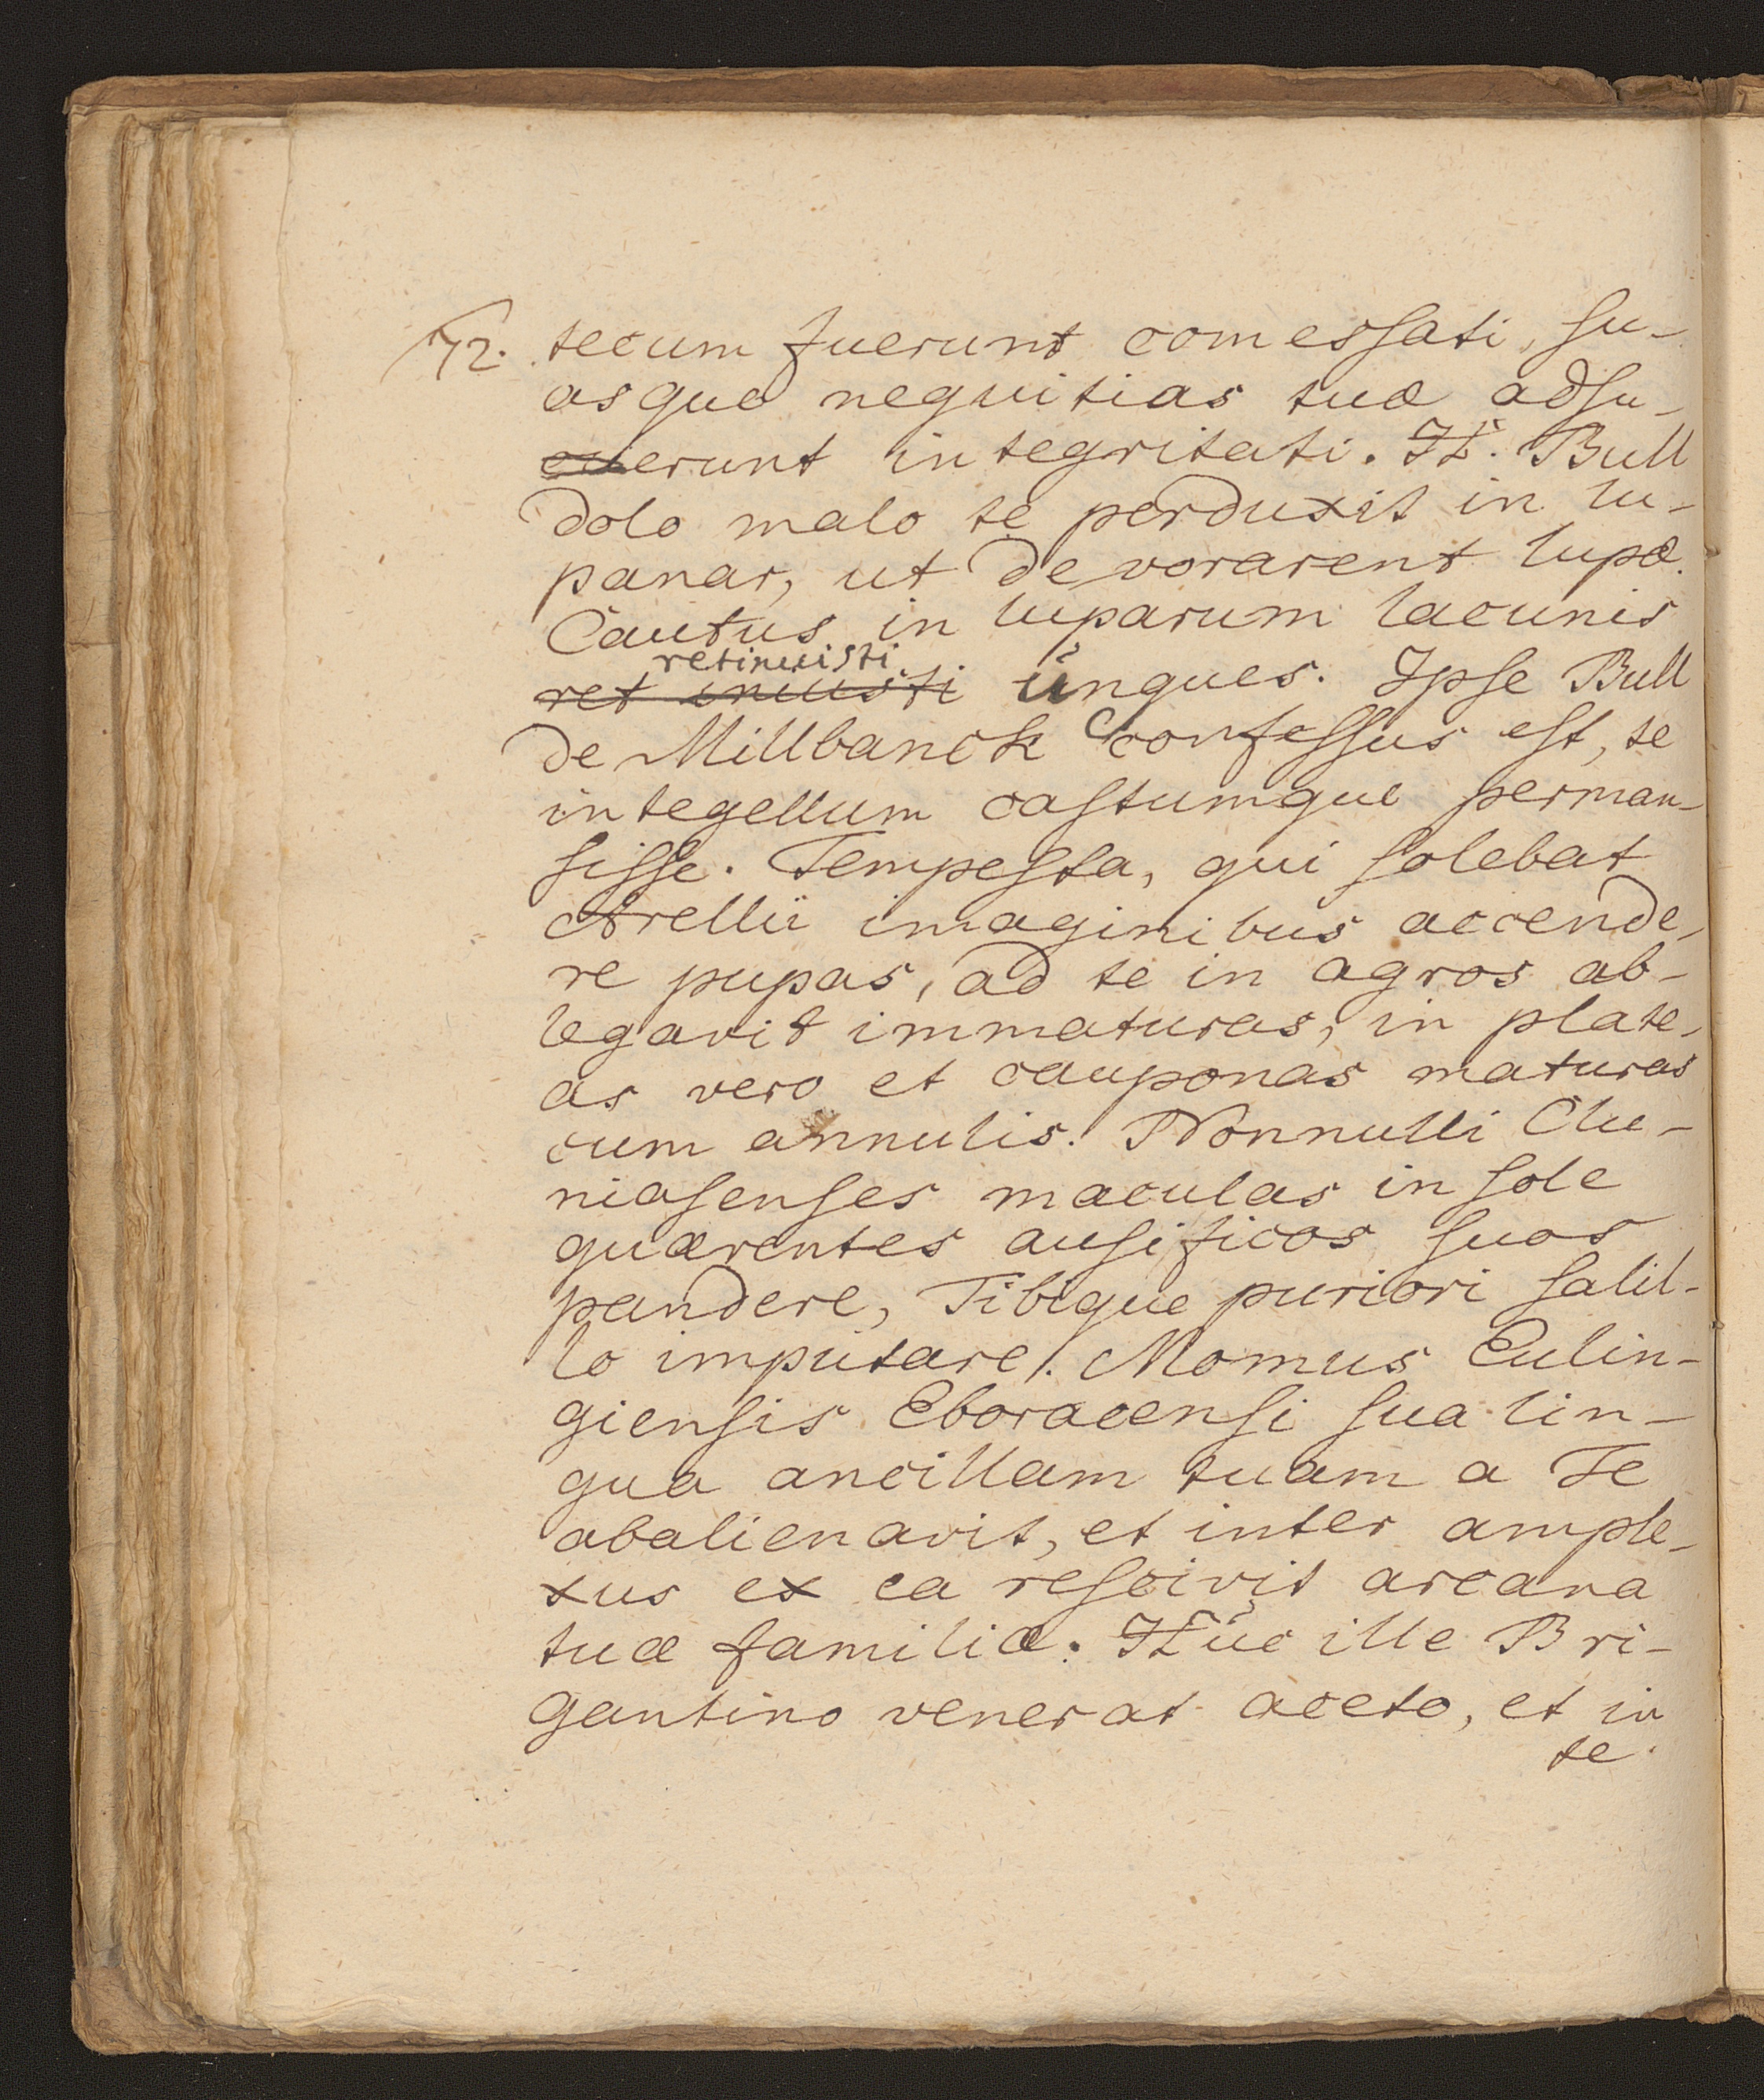 72. tecum fuerunt comessati, su-
asque nequitias tuæ adsu-
erunt integritati. H. Bull
dolo malo te perduxit in lu-
panar, ut devorarent lupæ.
Cautus in luparum lacunis
retinuisti
ungues. Ipse Bull
de Millbanck confessus est, te
integellum castumque perman-
sisse. Tempesta, qui solebat
Arellii imaginibus accende-
re pupas, ad te in agros ab-
legavit immaturas, in plate-
as vero et cauponas maturas
cum annulis. Nonnulli Clu-
niasenses maculas in sole
quærentes ausi ficos suos
pandere, Tibique puriori salil-
lo imputare. Momus Culin-
giensis Eboracensi sua lin-
gua ancillam tuam a Te
abalienavit, et inter ample-
xus ex ea rescivit arcana
tuæ familiæ. Huc ille Bri-
gantino venerat aceto, et in
te